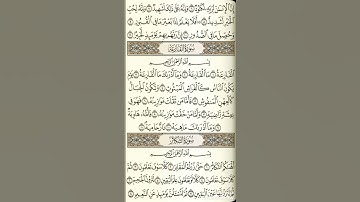 إِنَّ ٱلْإِنسَٰنَ لِرَبِّهِۦ لَكَنُودٌ ۝ وَإِنَّهُۥ عَلَىٰ ذَٰلِكَ لَشَهِيدٌ ۝ وَإِنَّهُۥ لِحُبِّ
ٱلْخَيْرِ لَشَدِيدٌ ۝ أَفَلَا يَعْلَمُ إِذَا بُعْثِرَ مَا فِى ٱلْقُبُورِ ۝
وَحُصِّلَ مَا فِى ٱلصُّدُورِ ۝ إِنَّ رَبَّهُم بِهِمْ يَوْمَئِذٍ لَّخَبِيرٌۢ ۝
سُورَةُ القَارِعَةِ
بِسْمِ ٱللَّهِ ٱلرَّحْمَٰنِ ٱلرَّحِيمِ
ٱلْقَارِعَةُ ۝ مَا ٱلْقَارِعَةُ ۝ وَمَآ أَدْرَىٰكَ مَا ٱلْقَارِعَةُ ۝ يَوْمَ
يَكُونُ ٱلنَّاسُ كَٱلْفَرَاشِ ٱلْمَبْثُوثِ ۝ وَتَكُونُ ٱلْجِبَالُ
كَٱلْعِهْنِ ٱلْمَنفُوشِ ۝ فَأَمَّا مَن ثَقُلَتْ مَوَٰزِينُهُۥ ۝ فَهُوَ فِى
عِيشَةٍ رَّاضِيَةٍ ۝ وَأَمَّا مَنْ خَفَّتْ مَوَٰزِينُهُۥ ۝ فَأُمُّهُۥ هَاوِيَةٌ
۝ وَمَآ أَدْرَىٰكَ مَا هِيَهْ ۝ نَارٌ حَامِيَةٌۢ ۝
سُورَةُ التَّكَاثُرِ
بِسْمِ ٱللَّهِ ٱلرَّحْمَٰنِ ٱلرَّحِيمِ
أَلْهَىٰكُمُ ٱلتَّكَاثُرُ ۝ حَتَّىٰ زُرْتُمُ ٱلْمَقَابِرَ ۝ كَلَّا سَوْفَ تَعْلَمُونَ ۝ ثُمَّ
كَلَّا سَوْفَ تَعْلَمُونَ ۝ كَلَّا لَوْ تَعْلَمُونَ عِلْمَ ٱلْيَقِينِ ۝ لَتَرَوُنَّ ٱلْجَحِيمَ
۝ ثُمَّ لَتَرَوُنَّهَا عَيْنَ ٱلْيَقِينِ ۝ ثُمَّ لَتُسْـَٔلُنَّ يَوْمَئِذٍ عَنِ ٱلنَّعِيمِ